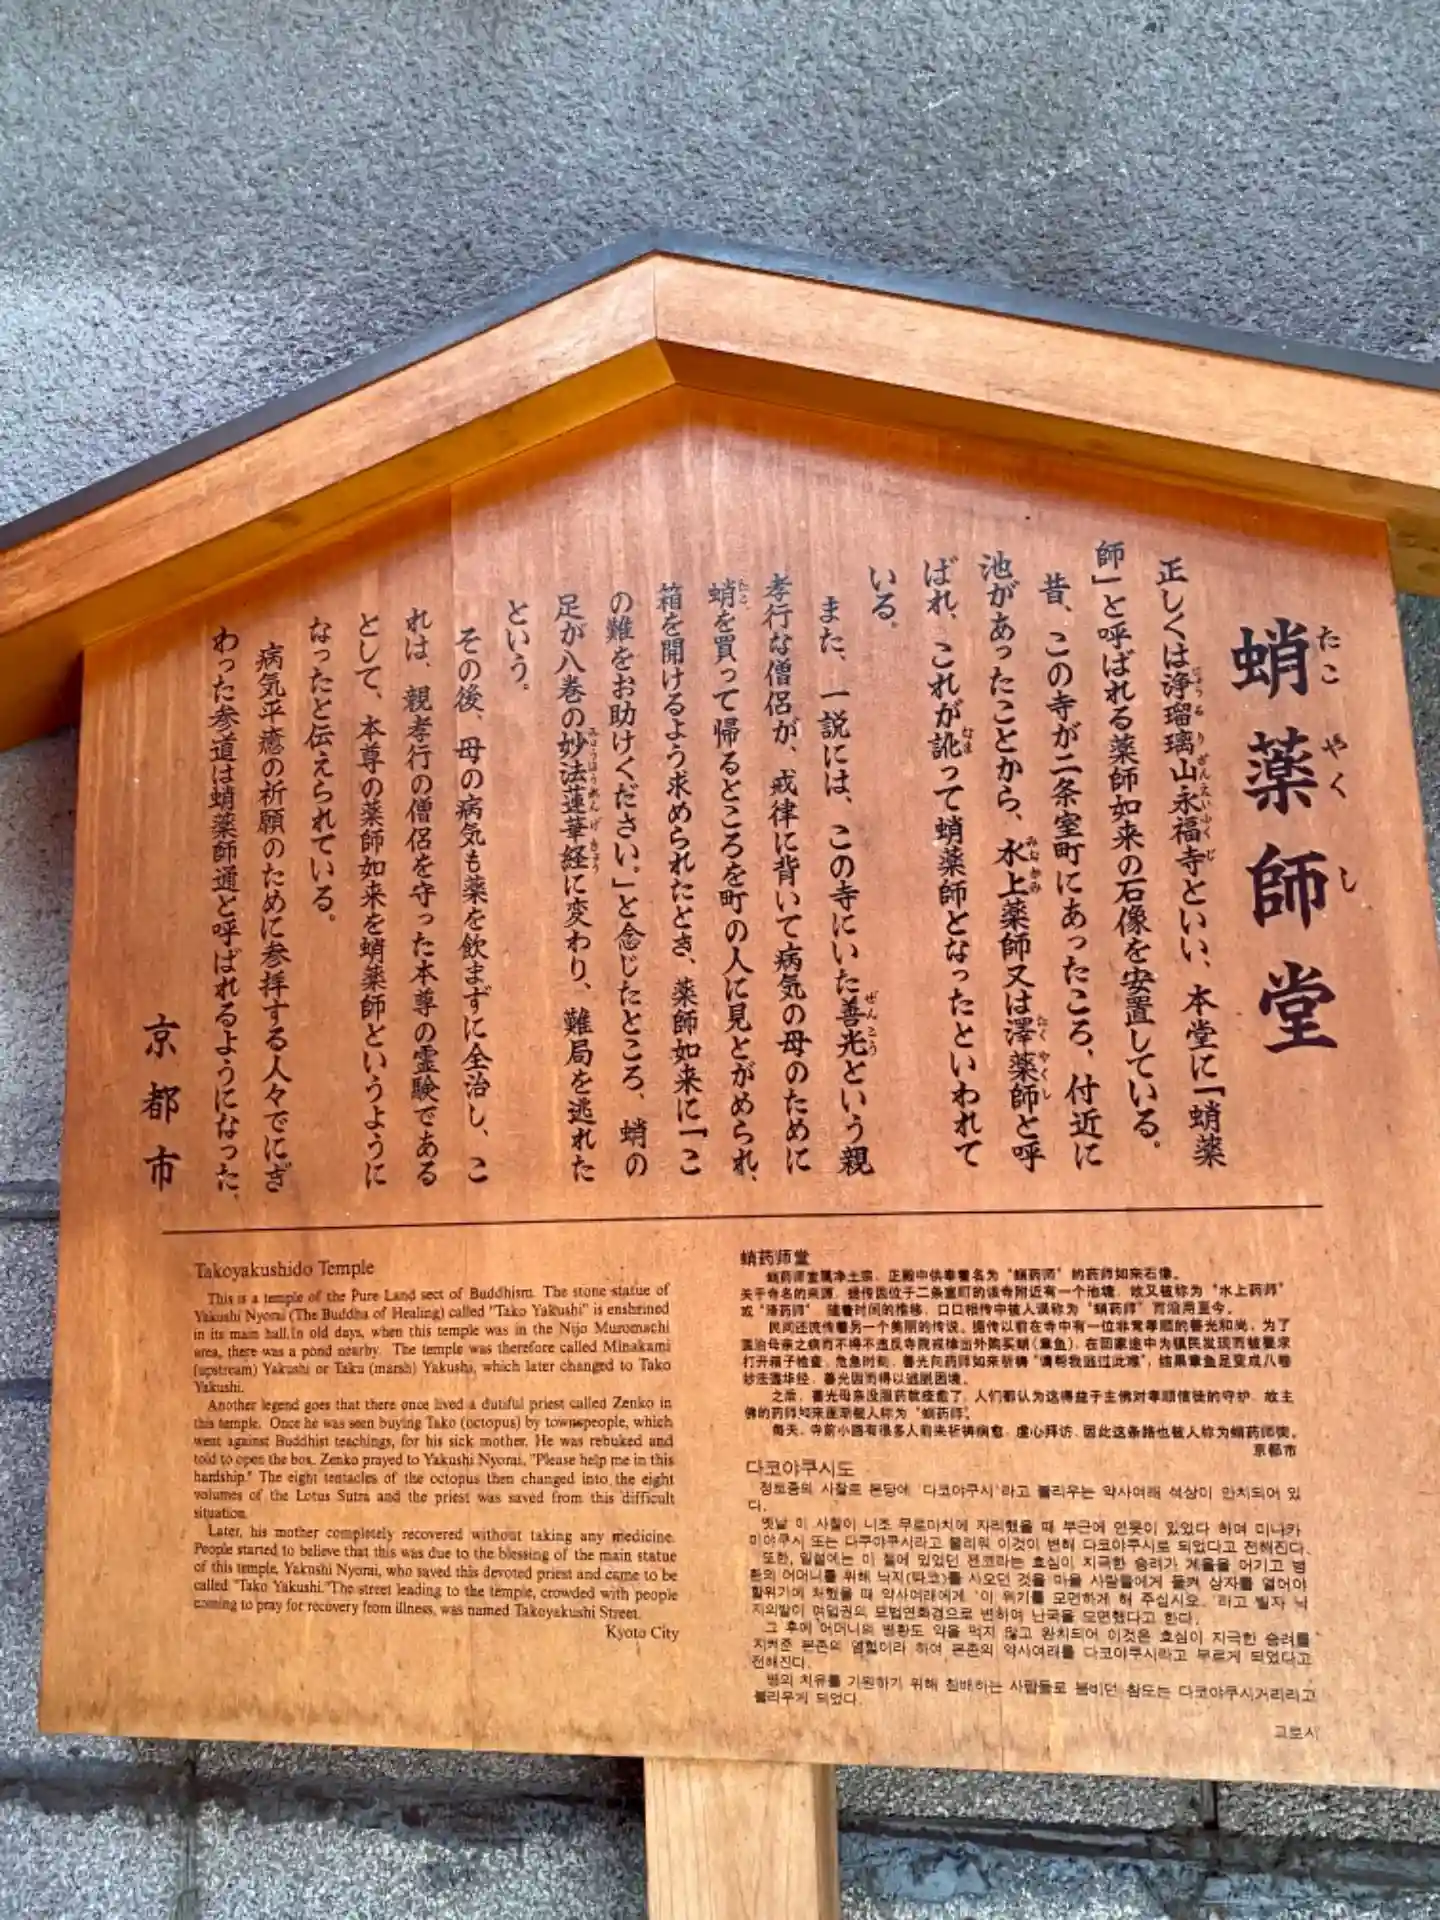 蛸薬師堂
たこやくし
正しくは浄瑠璃山永福寺といい、本堂に「蛸薬
師」と呼ばれる薬師如来の石像を安置している。
昔、この寺が二条室町にあったころ、付近に
池があったことから、水上薬師又は澤薬師と呼
ばれ、これが訛って蛸薬師となったといわれて
いる。
また、一説には、この寺にいた善光という親
孝行な僧侶が、戒律に背いて病気の母のために
蛸を買って帰るところを町の人に見とがめられ、
箱を開けるよう求められたとき、薬師如来に「こ
の難をお助けください。」と念じたところ、蛸の
足が八巻の妙法蓮華経に変わり、難局を逃れた
という。
その後、母の病気も薬を飲まずに全治し、こ
れは、親孝行の僧侶を守った本尊の霊験である
として、本尊の薬師如来を蛸薬師というように
なったと伝えられている。
病気平癒の祈願のために参拝する人々でにぎ
わった参道は蛸薬師通と呼ばれるようになった。
京都市
Takoyakushido Temple
This is a temple of the Pure Land sect of Buddhism. The stone statue of
Yakushi Nyorai (The Buddha of Healing) called "Tako Yakushi" is enshrined
in its main hall.In old days, when this temple was in the Nijo Muromachi
area, there was a pond nearby. The temple was therefore called Minakami
(upstream) Yakushi or Taku (marsh) Yakushi, which later changed to Tako
Yakushi.
Another legend goes that there once lived a dutiful priest called Zenko in
this temple. Once he was seen buying Tako (octopus) by townspeople, which
went against Buddhist teachings, for his sick mother. He was rebuked and
told to open the box. Zenko prayed to Yakushi Nyorai, "Please help me in this
hardship." The eight tentacles of the octopus then changed into the eight
volumes of the Lotus Sutra and the priest was saved from this difficult
situation.
Later, his mother completely recovered without taking any medicine.
People started to believe that this was due to the blessing of the main statue
of this temple, Yakushi Nyorai, who saved this devoted priest and came to be
called "Tako Yakushi."The street leading to the temple, crowded with people
coming to pray for recovery from illness, was named Takoyakushi Street.
Kyoto City
蛸药师堂
蛸药师堂属净土宗，正殿中供奉着名为“蛸药师”的药师如来石像。
关于寺名的来源，据传因位于二条室町的该寺附近有一个池塘，故又被称为“水上药师”
或“泽药师”，随着时间的推移，口口相传中被人误称为“蛸药师”而沿用至今。
民间还流传着另一个美丽的传说。据传以前在寺中有一位非常孝顺的善光和尚，为了
医治母亲之病而不得不违反寺院戒律出外购买蛸（章鱼），在回家途中为镇民发现而被要求
打开箱子检查，危急时刻，善光向药师如来祈祷“请帮我逃过此难”，结果章鱼足变成八卷
妙法莲华经，善光因而得以逃脱困境。
之后，善光母亲没服药就痊愈了，人们都认为这得益于主佛对孝顺信徒的守护，故主
佛的药师如来逐渐被人称为“蛸药师”。
每天，寺前小路有很多人前来祈祷病愈，虔心拜访，因此这条路也被人称为蛸药师街。
京都市
다코야쿠시도
정토종의 사찰로 본당에 '다코야쿠시'라고 불리우는 약사여래 석상이 안치되어 있
다.
옛날 이 사찰이 니조 무로마치에 자리했을 때 부근에 연못이 있었다 하여 미나카
미야쿠시 또는 다쿠야쿠시라고 불리워 이것이 변해 다코야쿠시로 되었다고 전해진다.
또한, 일설에는 이 절에 있었던 젠코라는 효심이 지극한 승려가 계율을 어기고 병
환의 어머니를 위해 낙지(타코)를 사오던 것을 마을 사람들에게 들켜 상자를 열어야
할위기에 처했을 때 약사여래에게 '이 위기를 모면하게 해 주십시오.'라고 빌자 낙
지의발이 여덟권의 묘법연화경으로 변하여 난국을 모면했다고 한다.
그 후에 어머니의 병환도 약을 먹지 않고 완치되어 이것은 효심이 지극한 승려를
지켜준 본존의 영험이라 하여 본존의 약사여래를 다코야쿠시라고 부르게 되었다고
전해진다.
병의 치유를 기원하기 위해 참배하는 사람들로 붐비던 참도는 다코야쿠시거리라고
불리우게 되었다.
교토시